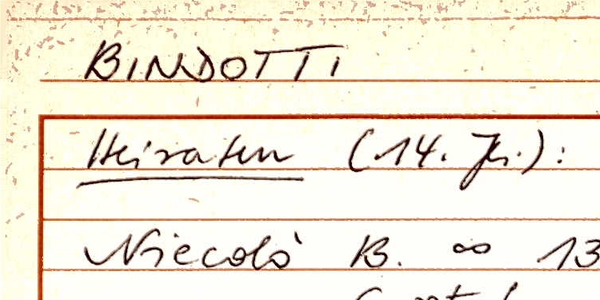 BINDOTTI
Heiraten (14. Jh.):
Niccolò B. ∞ 13